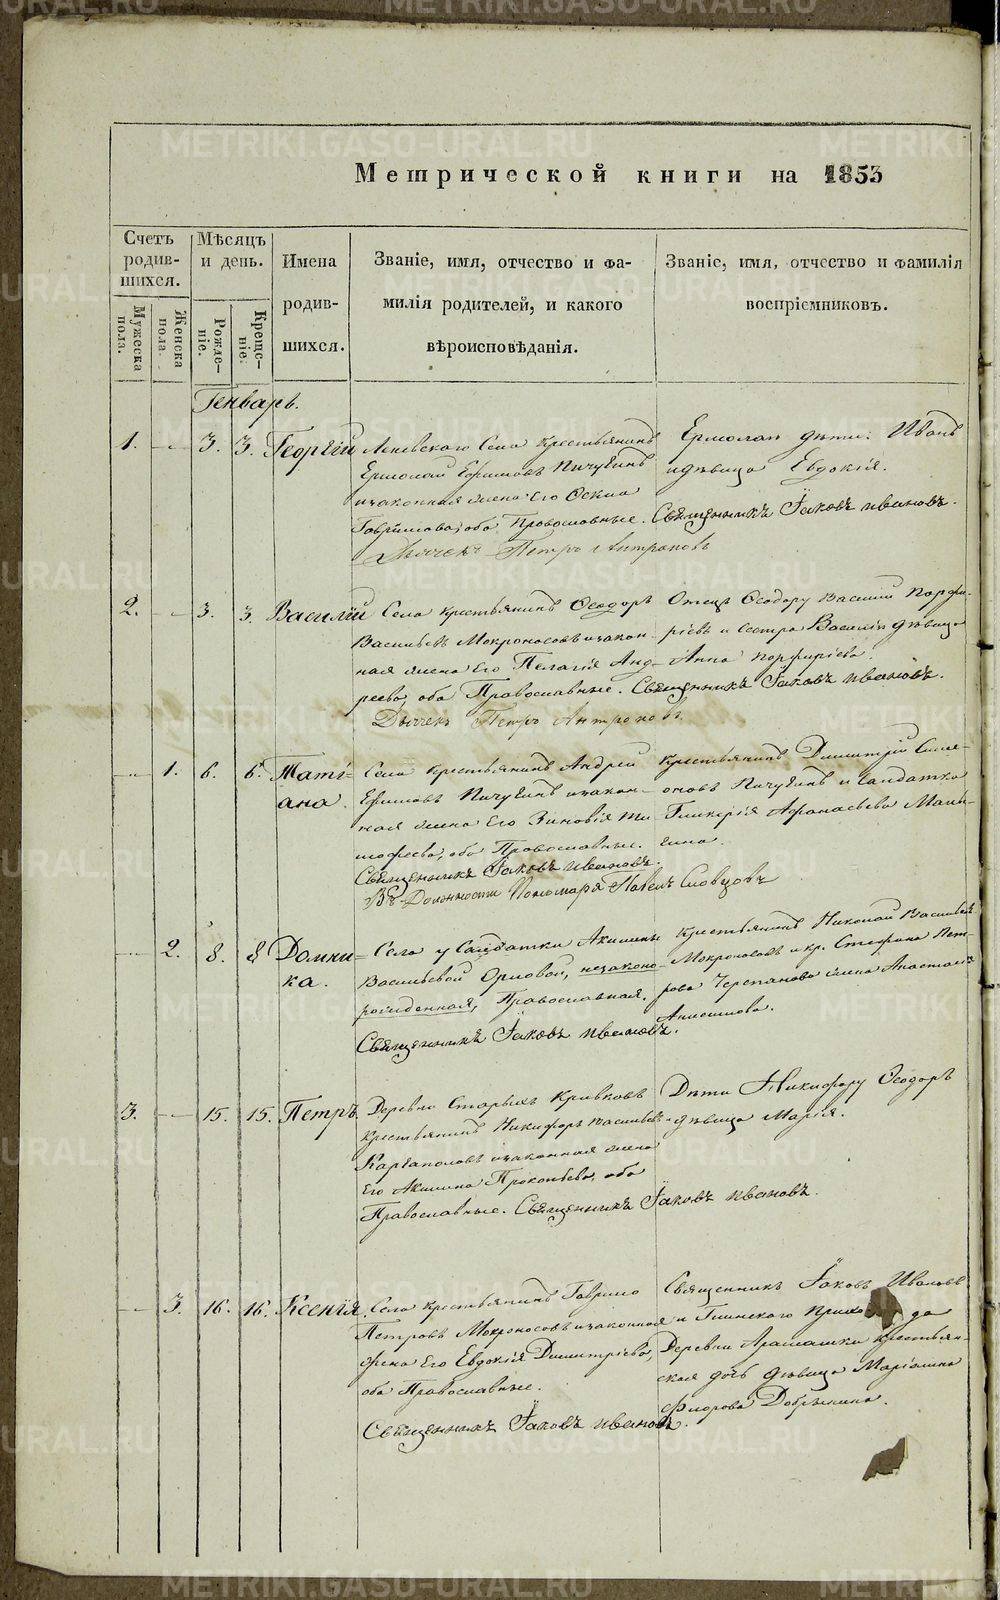 Метрической книги на 1853
Счетъ родив-шихся.
Мѣсяцъ и день.
Имена родив-шихся.
Званіе, имя, отчество и фа-
милія родителей, и какого
вѣроисповѣданія.
Званіе, имя, отчество и фамилія
воспріемниковъ.
Мужеска пола.
Женска пола.
Рожде-ніе.
Креще-ніе.
Генварь.
1. 3. 3. Георгій
Села Крестьянинъ
Ермолай Ефимовъ Пичугинъ
и законная жена Его
оба Православные.
Дьячекъ Петръ Антроповъ
Ермолая дѣти: Иванъ
и дѣвица Евдокія.
Священникъ Іаковъ Ивановъ.
2. 3. 3. Василій
Села Крестьянинъ Ѳеодоръ
Васильевъ Мокроносовъ и закон-
ная жена Его Пелагія Анд-
реева, оба Православные.
Дьячекъ Петръ Антроповъ
Отецъ Ѳеодору Василій Порфи-
ріевъ и сестра Василія дѣвица
Анна Порфиріева.
Священникъ Іаковъ Ивановъ.
1. 6. 6. Таті-
ана.
Села Крестьянинъ Андрей
Ефимовъ Пичугинъ и закон-
ная жена Его Зиновія Ти-
мофеева, оба Православные.
Священникъ Іаковъ Ивановъ.
Въ Должности Пономаря Павелъ Словцовъ
Крестьянинъ Димитрій Симе-
оновъ Пичугинъ и Салдатка
Гликерія Афанасьева
2. 8. 8 Домни-
ка.
Села у Салдатки Акилины
Васильевой Орловой, незаконо-
рожденная, Православная.
Священникъ Іаковъ Ивановъ.
Крестьянинъ Николай Васильевъ
Мокроносовъ и кр. Стефана Пет-
рова Черепанова жена Анастасія
3. 15. 15. Петръ
Деревни Старыхъ Кривковъ
Крестьянинъ Никифоръ Васильевъ
Каргаполовъ и законная жена
Его Акилина Прокопьева, оба
Православные. Священникъ Іаковъ Ивановъ.
Дѣти Никифору Ѳеодоръ
дѣвица Марія.
3. 16. 16. Ксенія.
Села Крестьянинъ Гаврило
Петровъ Мокроносовъ и законная
жена Его Евдокія Димитріева,
оба Православные.
Священникъ Іаковъ Ивановъ.
Священникъ Іаковъ Ивановъ
и Глинскаго Прихода
Деревни Арамашки крестьян-
ская дочь дѣвица
Флорова Добрынина.
METRIKI.GASO-URAL.RU